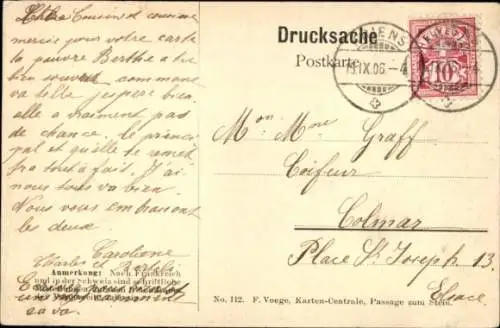 Chère Cousine et cousin
merci pour votre carte
la pauvre Berthe a tu
bien souvent comme
va t'elle j'espère bien
elle a vraiment pas
de chance. le princi
pal et qu'elle te remet
fra tout à fait. J'ai
nous tous va bien.
Nous vous embrassons
les deux
Caroline
Charles et
Anmerkung: Nach Frankreich
und in der Schweiz sind schriftliche
ça va.
Drucksache
Postkarte
15.IX.06.-4
HELVETIA
10
Mon Mme Graff
Coifeur
Colmar
Place St. Joseph 13
Elsace
No. 112. F. Voege, Karten-Centrale, Passage zum Stein.